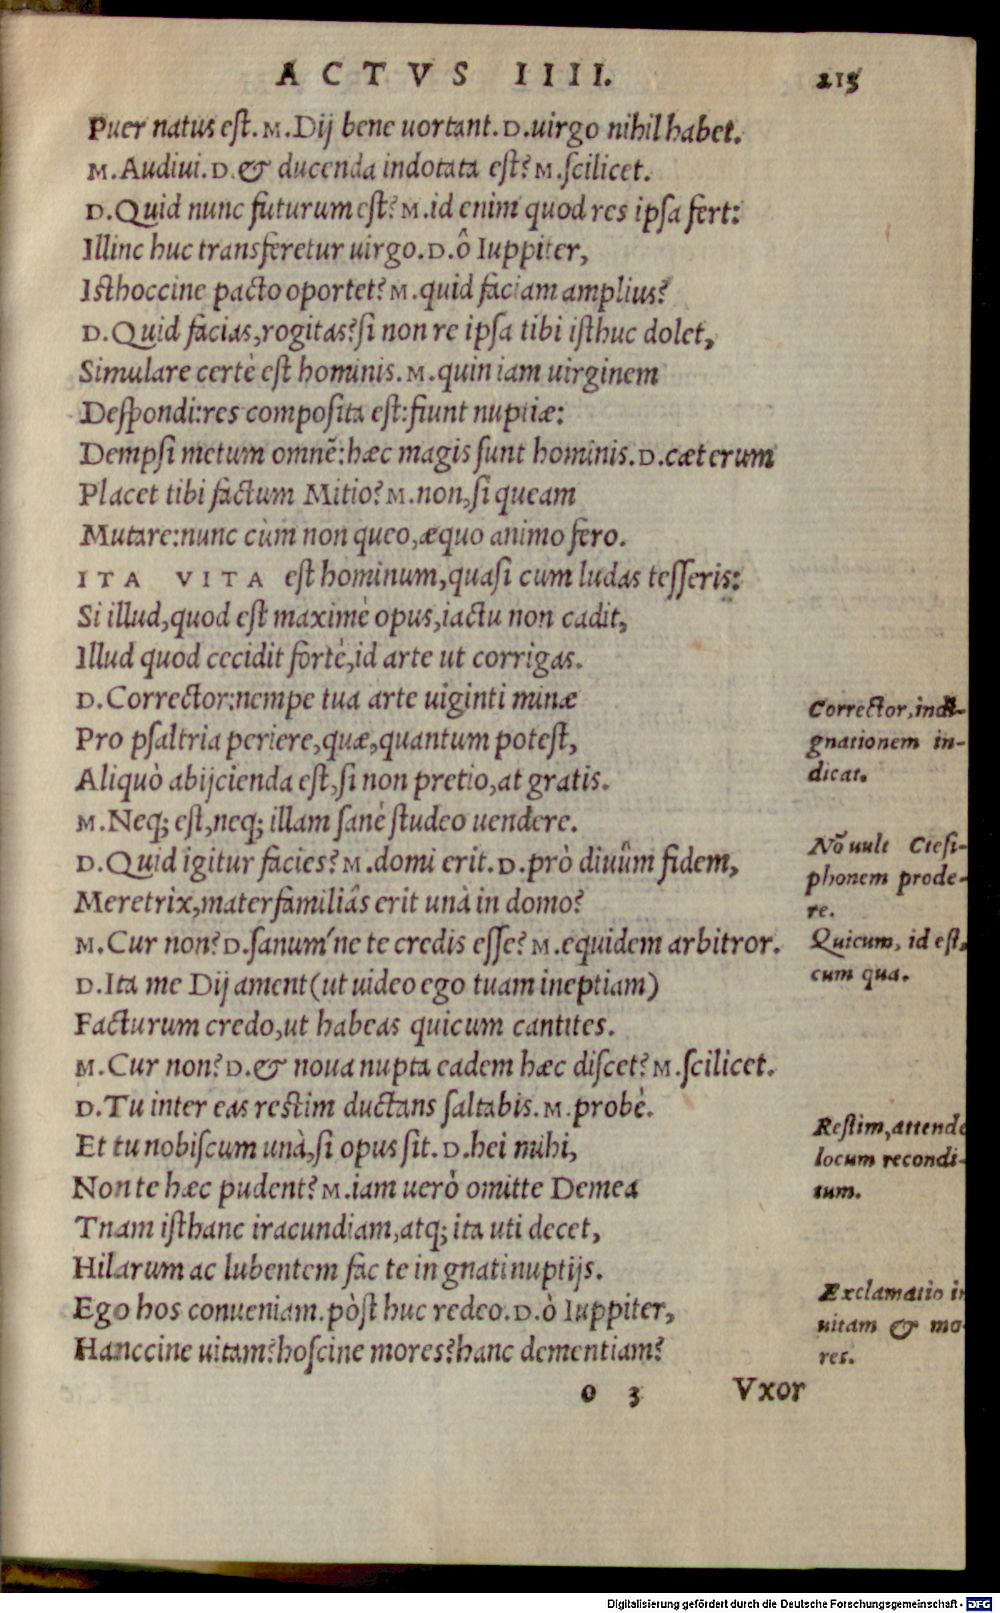 ACTVS IIII. 213
Puer natus est. M. Dij bene uortant. D. uirgo nihil habet.
M. Audiui. D. & ducenda indotata est? M. scilicet.
D. Quid nunc futurum est? M. id enim quod res ipsa fert:
Illinc huc transferetur uirgo. D. ô Iuppiter,
Isthoccine pacto oportet? M. quid faciam amplius?
D. Quid facias, rogitas? si non re ipsa tibi isthuc dolet,
Simulare certè est hominis. M. quin iam uirginem
Despondi: res composita est: fiunt nuptiæ:
Dempsi metum omnē: hæc magis sunt hominis. D. cæterum
Placet tibi factum Mitio? M. non, si queam
Mutare: nunc cùm non queo, æquo animo fero.
ITA VITA est hominum, quasi cum ludas tesseris:
Si illud, quod est maximè opus, iactu non cadit,
Illud quod cecidit fortè, id arte ut corrigas.
D. Corrector: nempe tua arte uiginti minæ
Pro psaltria periere, quæ, quantum potest,
Aliquò abijcienda est, si non pretio, at gratis.
M. Neq; est, neq; illam sanè studeo uendere.
D. Quid igitur facies? M. domi erit. D. prò diuûm fidem,
Meretrix, materfamiliâs erit unà in domo?
M. Cur non? D. sanum'ne te credis esse? M. equidem arbitror.
D. Ita me Dij ament (ut uideo ego tuam ineptiam)
Facturum credo, ut habeas quicum cantites.
M. Cur non? D. & noua nupta eadem hæc discet? M. scilicet.
D. Tu inter eas restim ductans saltabis. M. probè.
Et tu nobiscum unà, si opus sit. D. hei mihi,
Non te hæc pudent? M. iam uerò omitte Demea
Tnam isthanc iracundiam, atq; ita uti decet,
Hilarum ac lubentem fac te in gnati nuptijs.
Ego hos conueniam. pòst huc redeo. D. ò Iuppiter,
Hanccine uitam? hoscine mores? hanc dementiam?
o 3 Vxor
Corrector, indi-
gnationem in-
dicat.
Nō uult Ctesi-
phonem prode-
re.
Quicum, id est,
cum qua.
Restim, attende
locum recondi-
tum.
Exclamatio in
uitam & mo-
res.
Digitalisierung gefördert durch die Deutsche Forschungsgemeinschaft - DFG